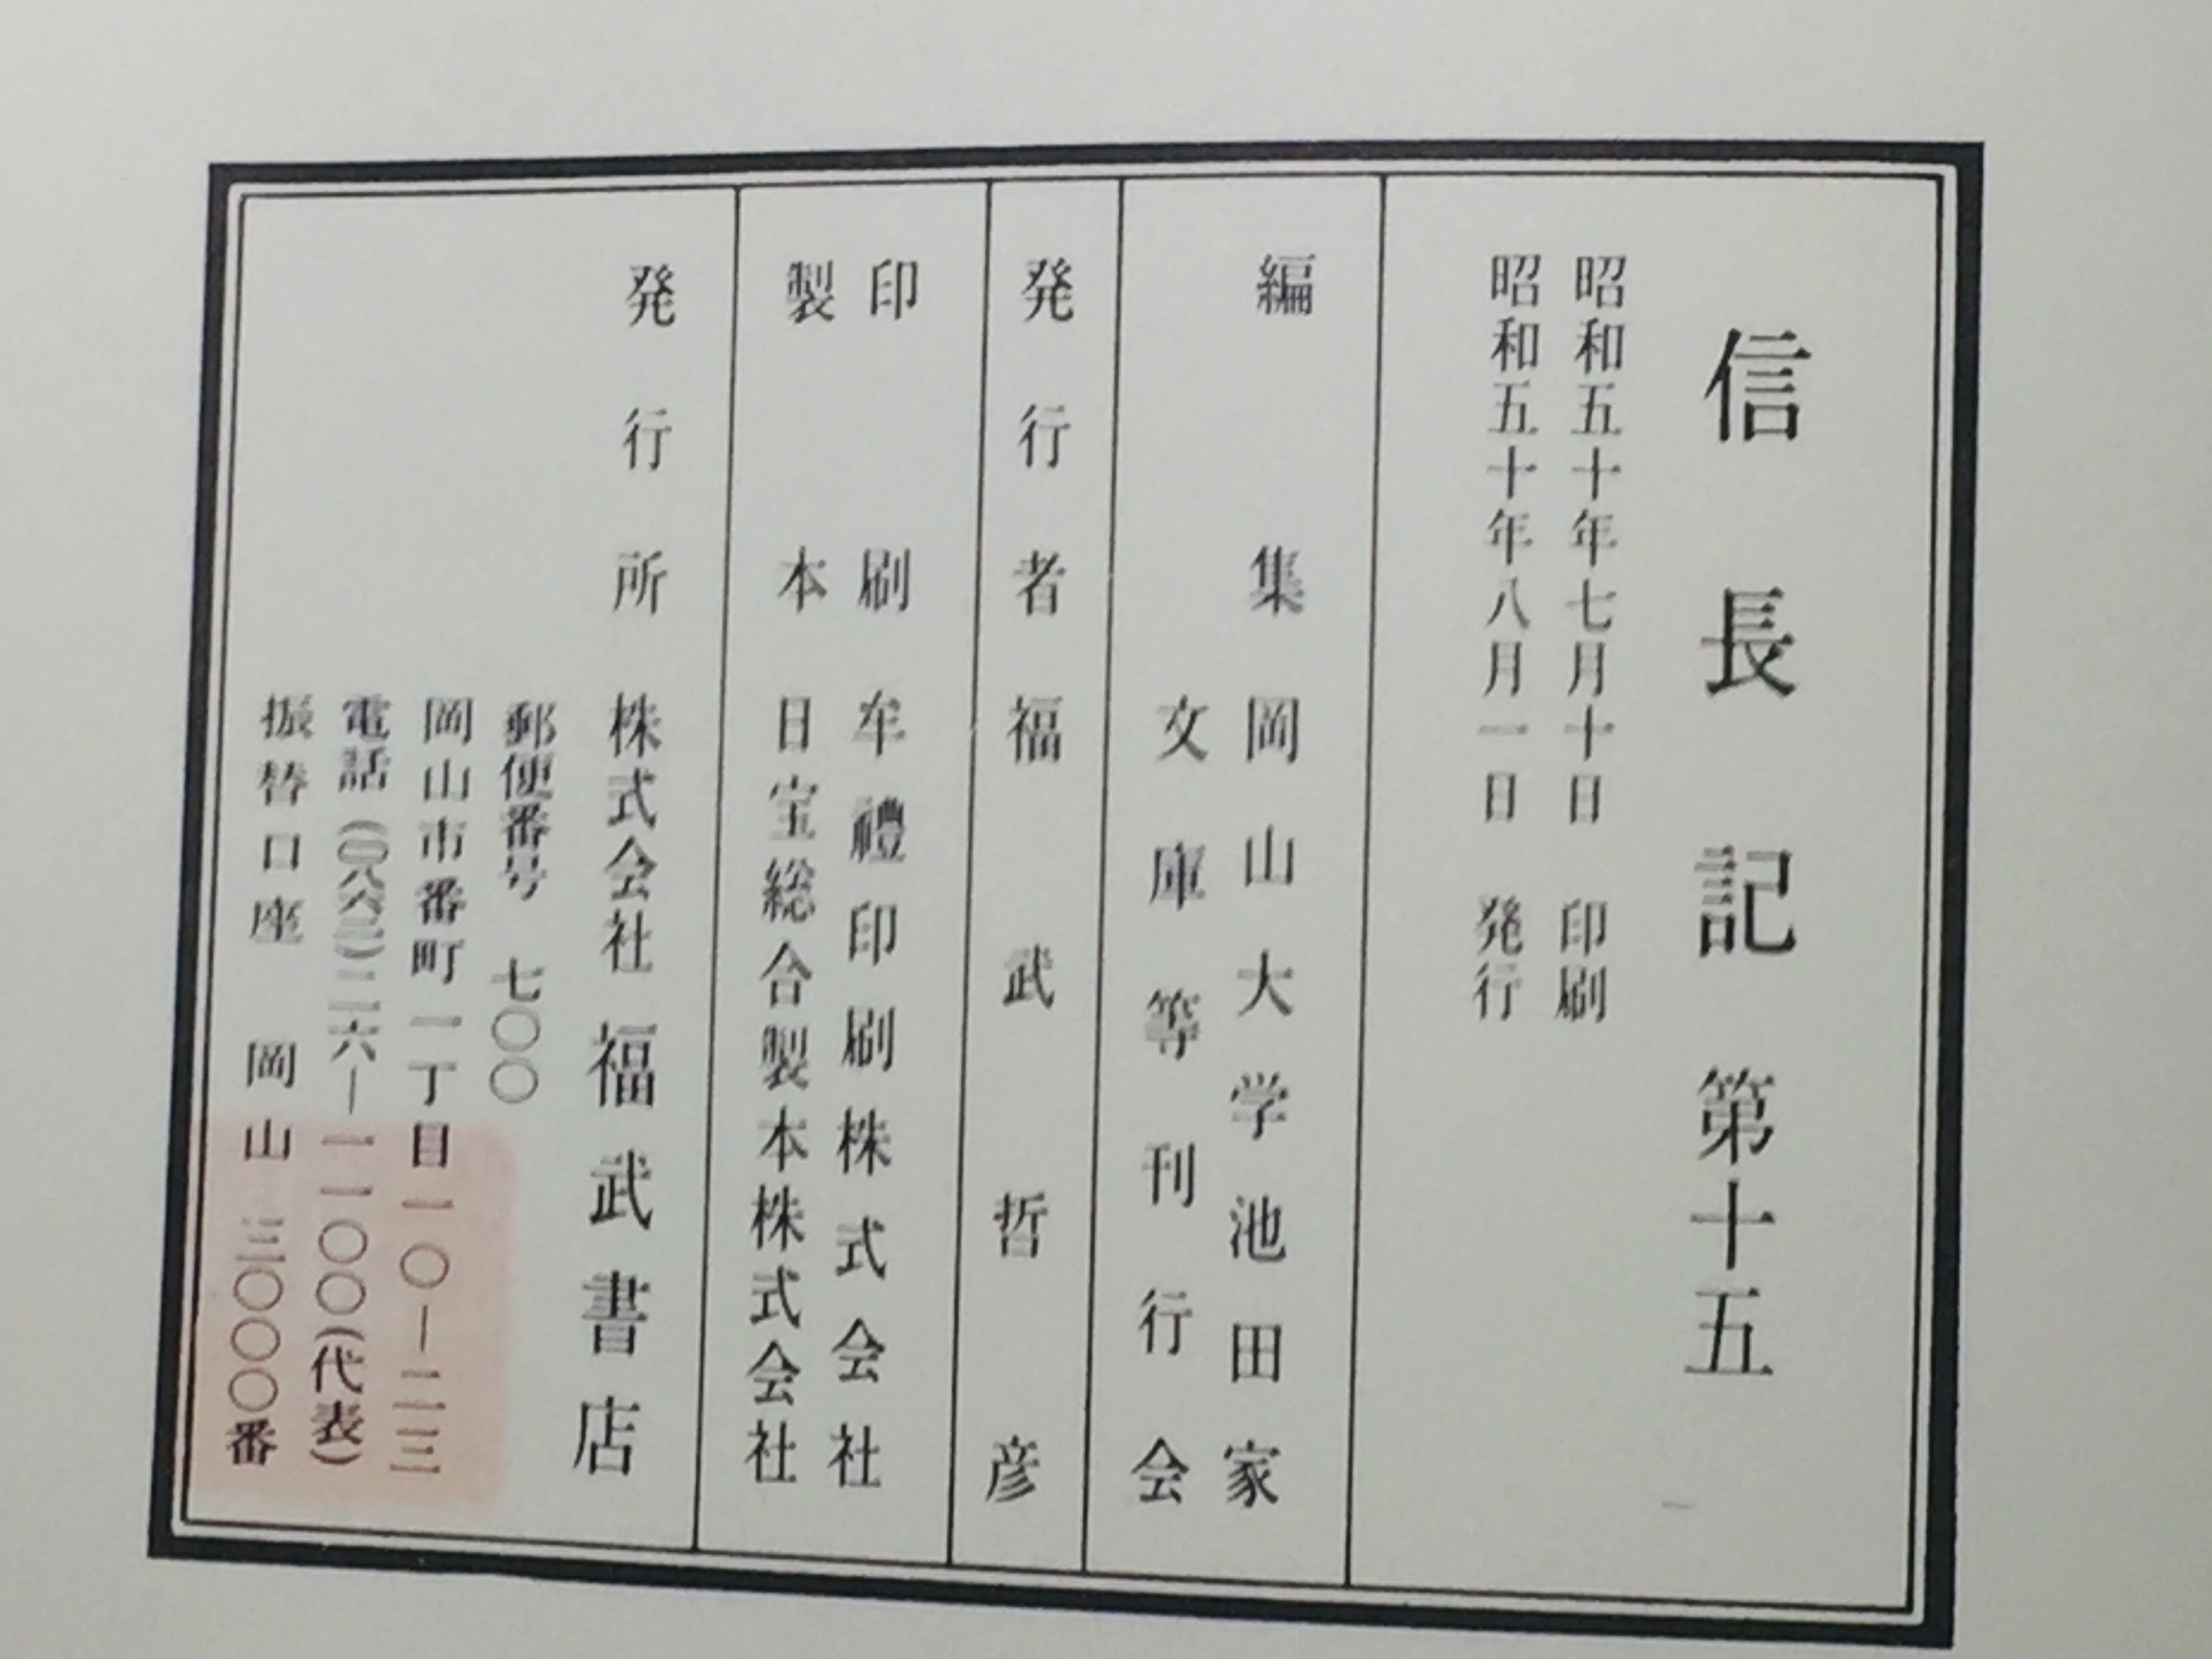 信長記　第十五
昭和五十年七月十日　印刷
昭和五十年八月一日　発行
編集　岡山大学池田家
文庫等刊行会
発行者　福武哲彦
印刷　牟禮印刷株式会社
製本　日宝総合製本株式会社
発行所　株式会社　福武書店
郵便番号　七〇〇
岡山市番町一丁目一〇―二三
電話（〇八六二）二六―一一〇〇（代表）
振替口座　岡山　三〇〇〇番